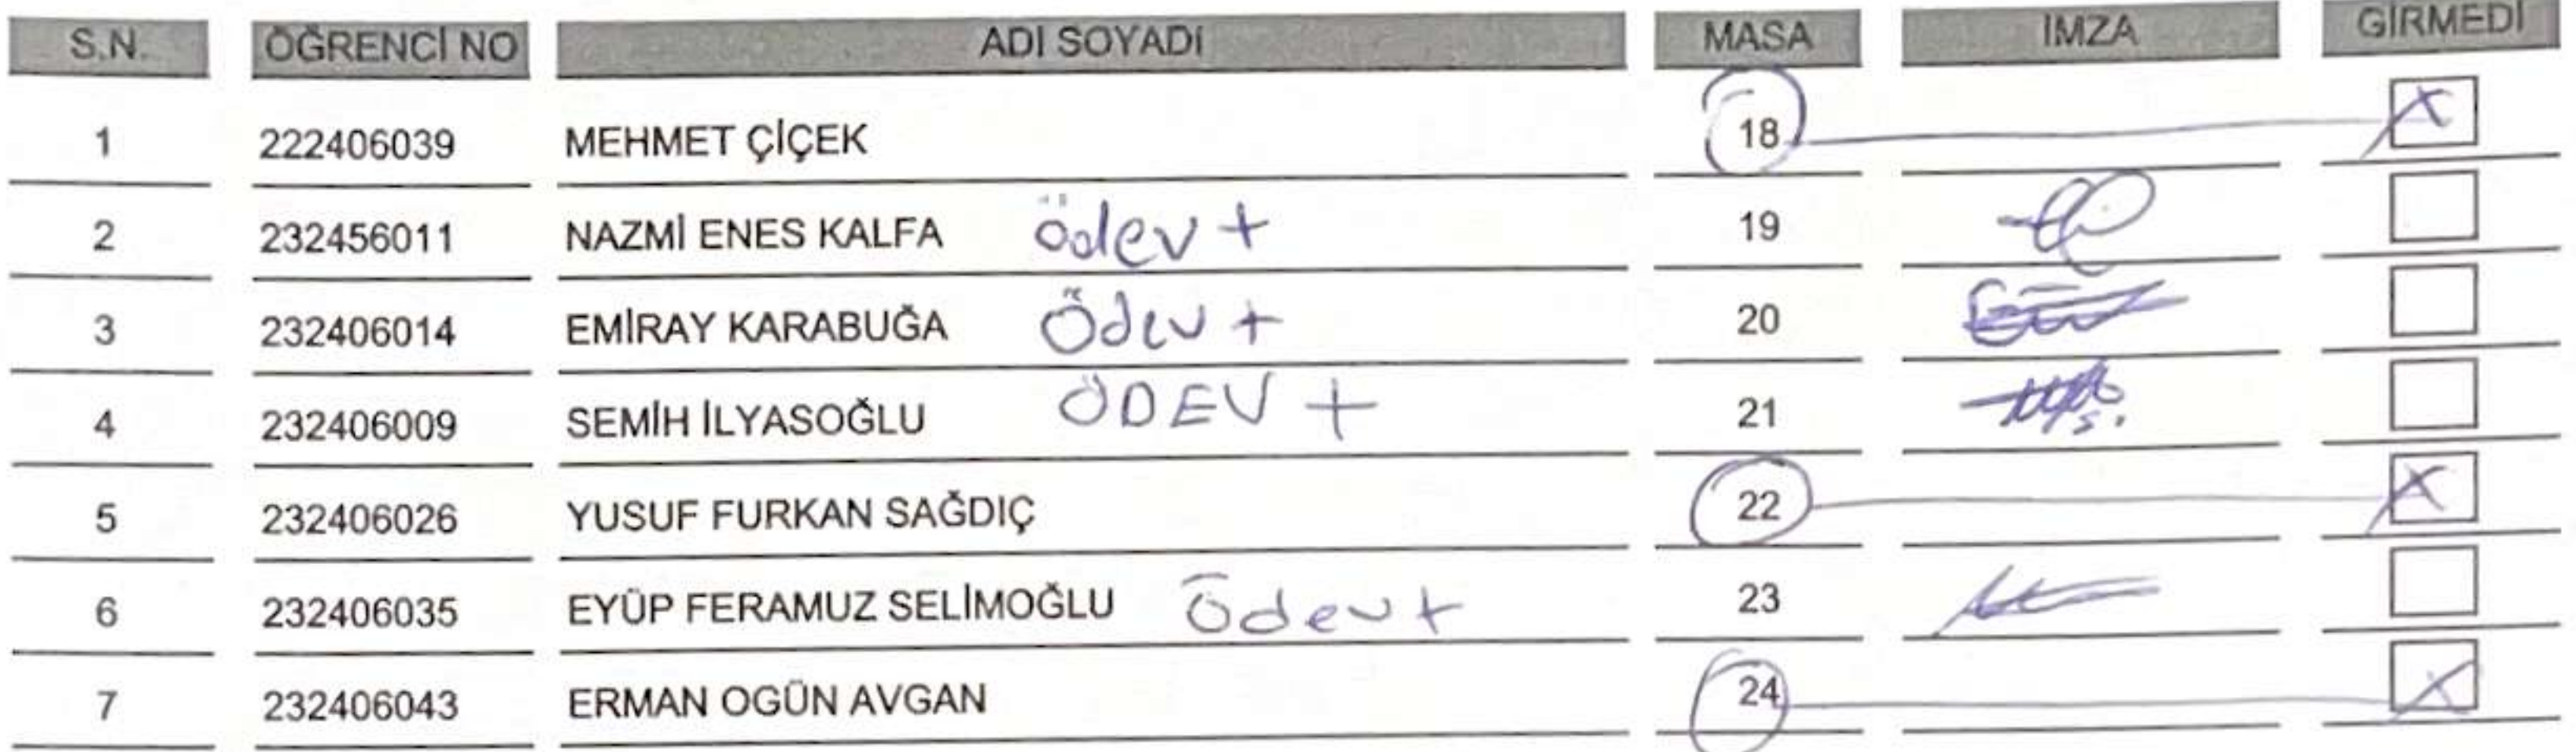 S.N. ÖĞRENCİ NO ADI SOYADI MASA İMZA GİRMEDİ
1 222406039 MEHMET ÇİÇEK 18 X
2 232456011 NAZMİ ENES KALFA ödev + 19
3 232406014 EMİRAY KARABUĞA Ödev + 20
4 232406009 SEMİH İLYASOĞLU ÖDEV + 21
5 232406026 YUSUF FURKAN SAĞDIÇ 22 X
6 232406035 EYÜP FERAMUZ SELİMOĞLU Ödev + 23
7 232406043 ERMAN OGÜN AVGAN 24 X